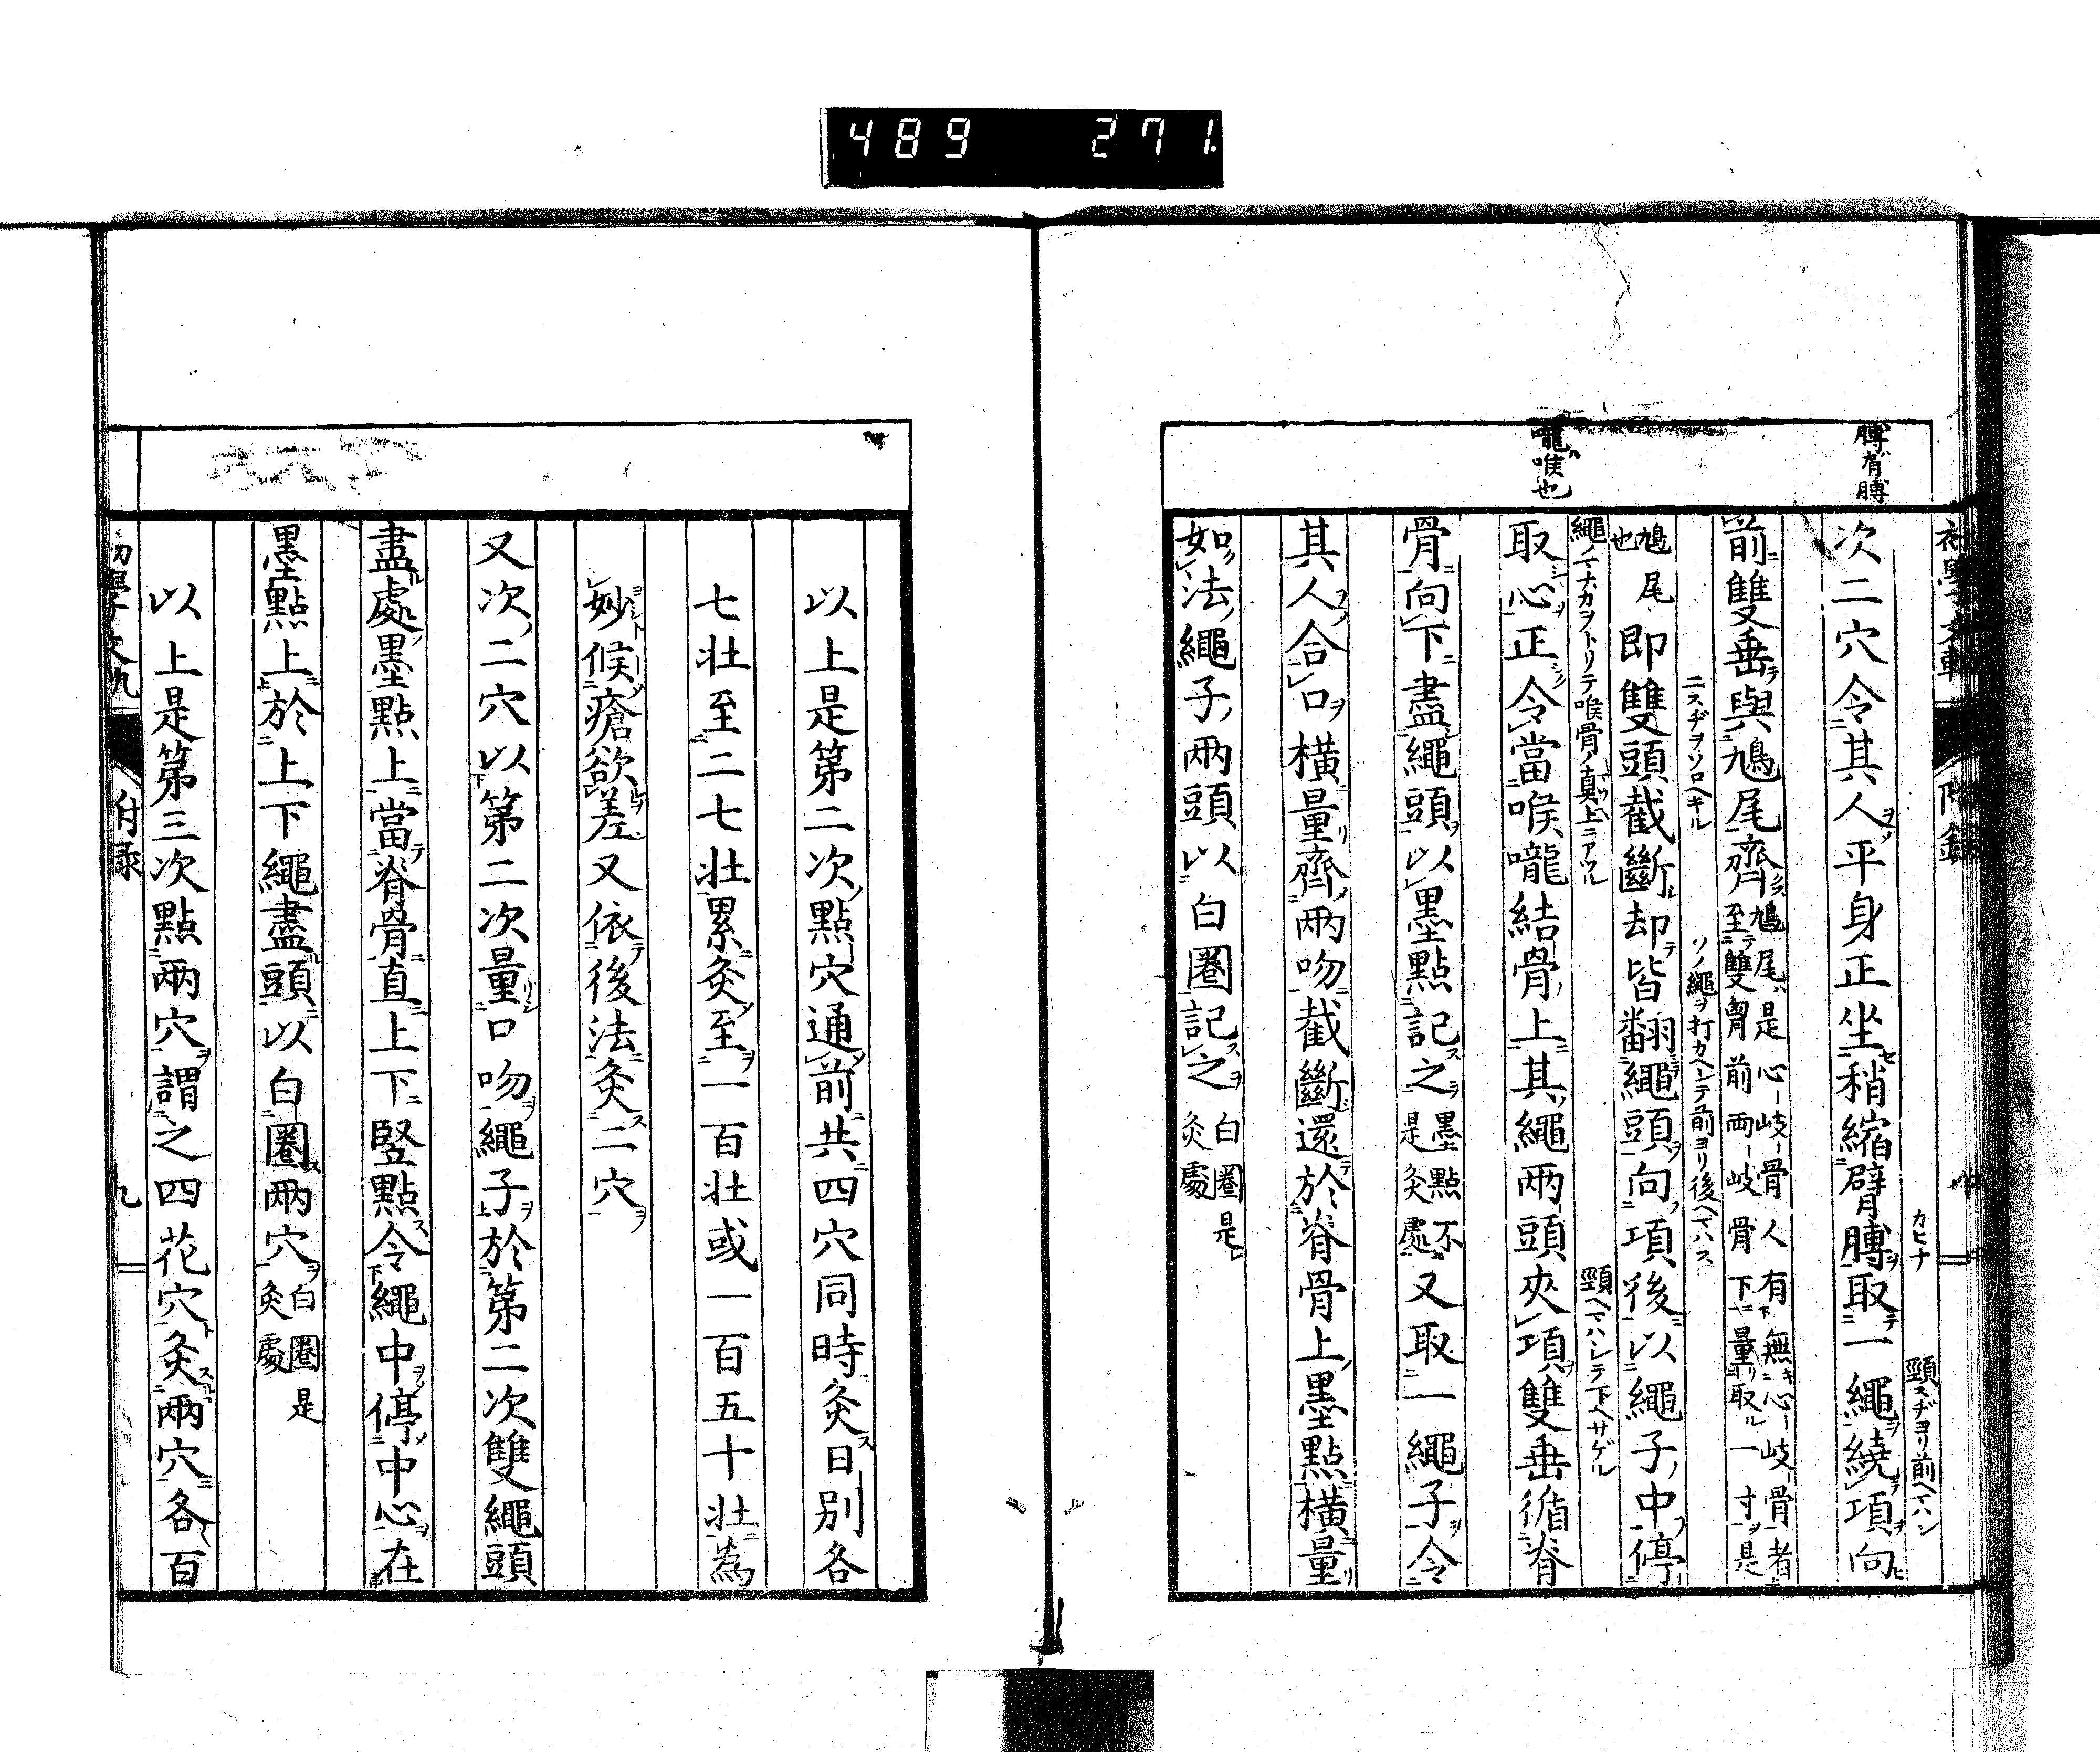 489 271
膊肩膊
嚨喉也
次二穴令其人平身正坐稍縮臂膊取一繩繞項向
前雙垂與鳩尾齊鳩尾是心岐骨人有無心岐骨者至雙胷前両岐骨下量取一寸是
鳩尾也即雙頭截斷却皆翻繩頭向項後以繩子中停
取心正令當喉嚨結骨上其繩兩頭夾項雙垂循脊
骨向下盡繩頭以墨點記之墨點不是灸處又取一繩子令
其人合口橫量齊兩吻截斷還於脊骨上墨點橫量
如法繩子兩頭以白圈記之白圈是灸處
カヒナ
頸スヂヨリ前ヘマハシ
ニスヂヲソロヘキル
ソノ繩ヲ打カヘシテ前ヨリ後ヘマハス
喉骨ノ真上ニアツル
頸ヘマハシテ下ヘサゲル
附錄
以上是第二次點穴通前共四穴同時灸日別各
七壯至二七壯累灸至一百壯或一百五十壯為
妙候瘡欲差又依後法灸二穴
又次二穴以第二次量口吻繩子於第二次雙繩頭
盡處墨點上當脊骨直上下竪點令繩中停中心在
墨點上於上下繩盡頭以白圈兩穴白圈是灸處
以上是第三次點兩穴謂之四花穴灸兩穴各百
附録
九